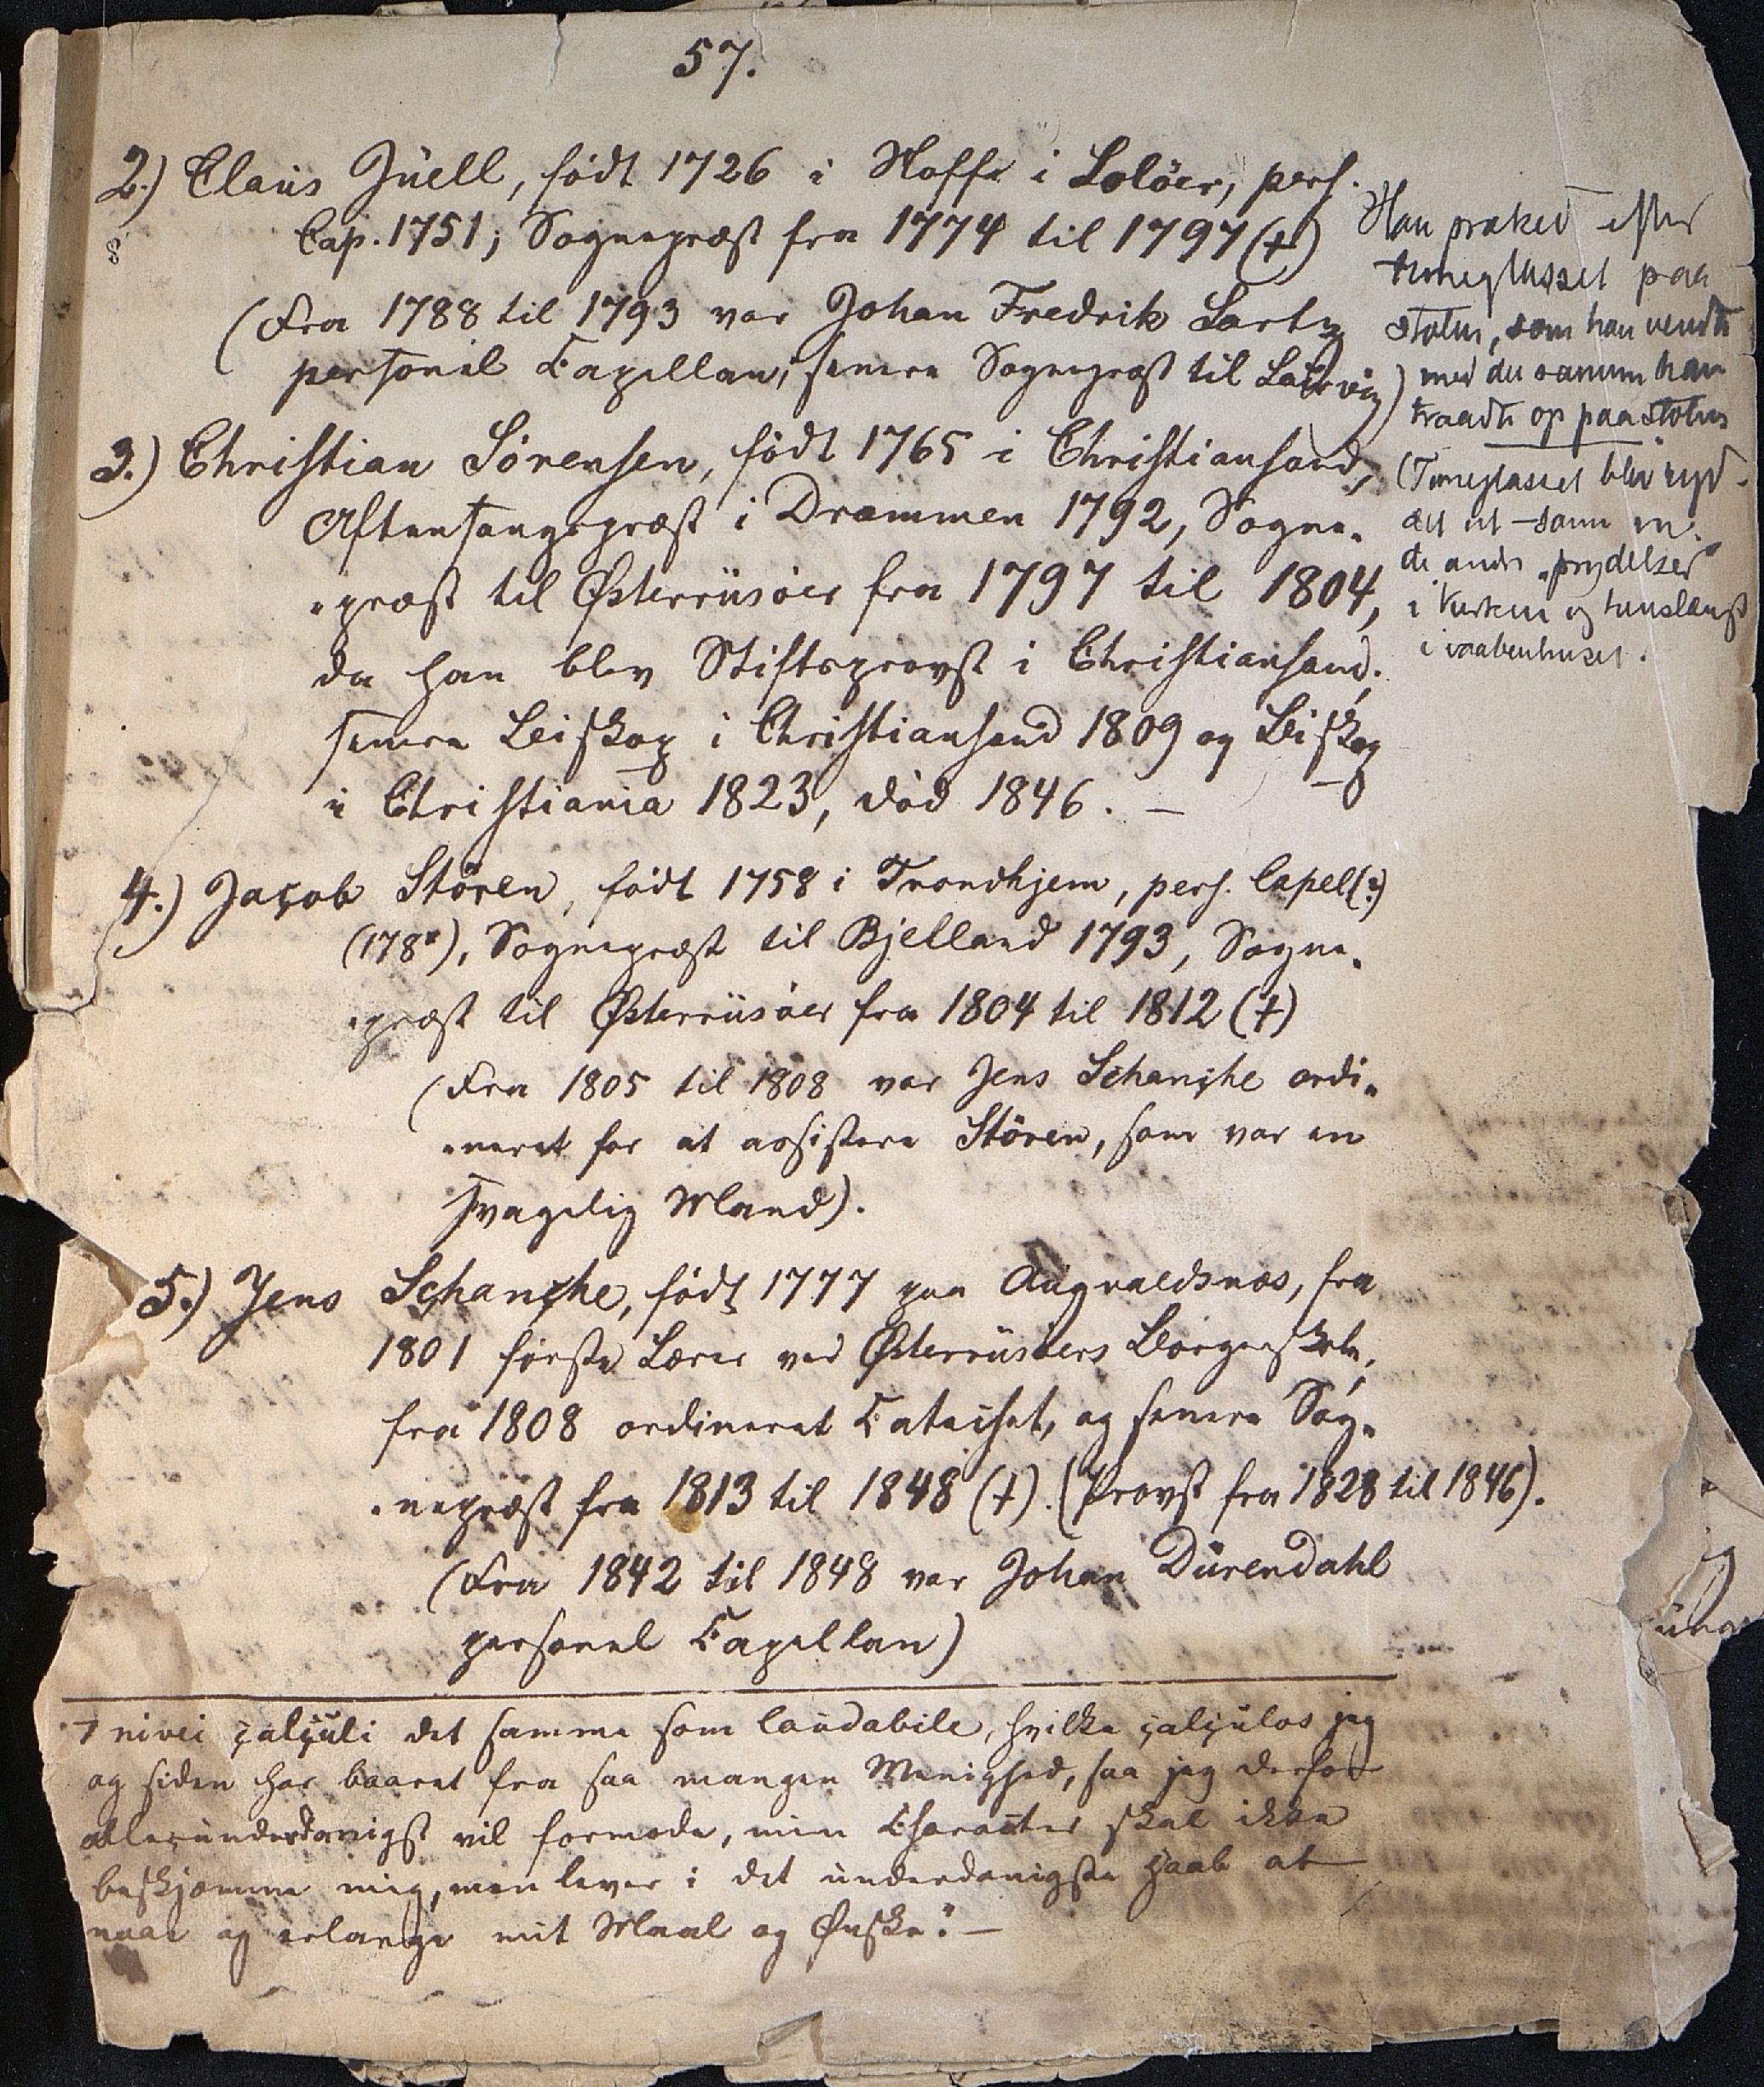 57.
2.) Claus Juell, født 1726 i Hoffe i Soløer, pers.
Cap. 1751; Sognepræst fra 1774 til 1797 (+)
(Fra 1788 til 1793 var Johan Fredrik Bartz
personel Capellan; senere Sognepræst til Laurvig)
3.) Christian Sörensen, født 1765 i Christiansand,
Aftensangspræst i Drammen 1792, Sogne-
-præst til Østerriisöer fra 1797 til 1804,
da han blev Stiftsprovst i Christiansand;
senere Biskop i Christiansand 1809 og Biskop
i Christiania 1823, död 1846. —
4.) Jacob Stören, født 1758 i Trondhjem, pers. Capel(?)
(178*), Sognepræst til Bjelland 1793, Sogne-
-præst til Østerriisöer fra 1804 til 1812 (+)
(Fra 1805 til 1808 var Jens Schanche ordi-
-neret for at assistere Stören, som var en
svagelig Mand).
5.) Jens Schanche, født 1777 paa Augvaldsnæs, fra
1801 første Lærer ved Østerriisöers Borgerskole,
fra 1808 ordineret Catechet, og senere Sog-
-nepræst fra 1813 til 1848 (+). (Provst fra 1828 til 1846).
(Fra 1842 til 1848 var Johan Dürendahl
personel Capellan)
nivei calculi det samme som laudabile, hvilke calculos jeg
og siden har baaret fra saa mangen Menighed, saa jeg derfor
allerunderdanigst vil formode, min Character skal ikke
beskjæmme mig, men lever i det underdanigste Haab at
naae og erlange mit Maal og Ønske." —
Han præket efter
timeglasset paa
stolen, som han vendte
med det samme han
traadte op paa stolen
(Timeglasset blev ryd-
det ut – som en
de andre "prydelser"
i kirken og henslængt
i vaabenhuset.